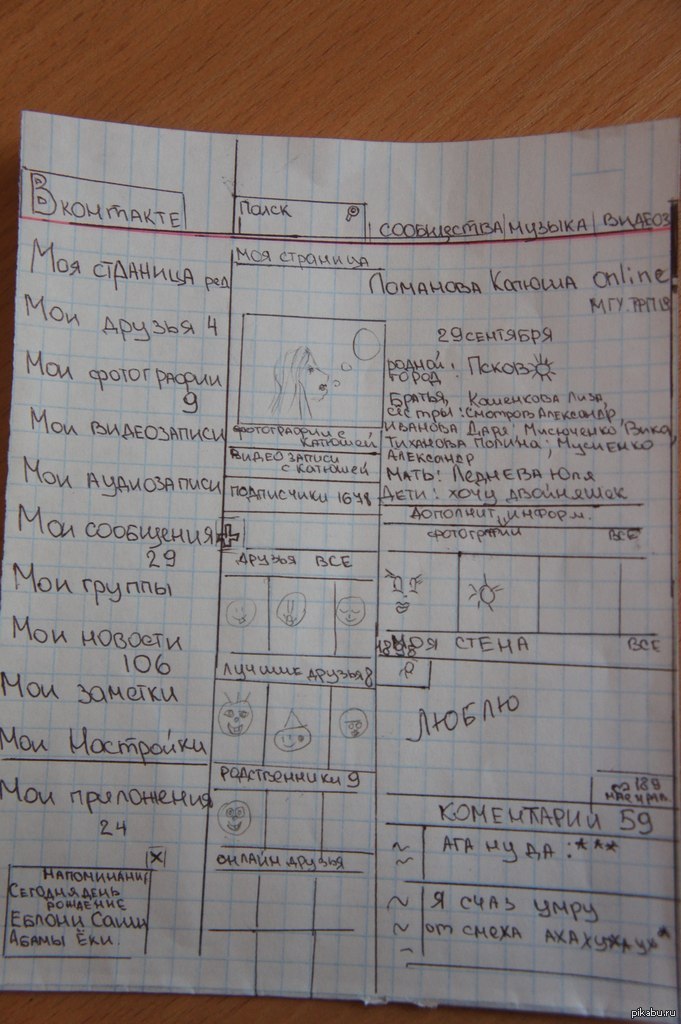 ВКОНТАКТЕ
Поиск
СООБЩЕСТВА МУЗЫКА ВИДЕОЗ
Моя страница ред
Мои друзья 4
Мои фотографии
9
Мои видеозаписи
Мои аудиозаписи
Мои сообщения
29
Мои группы
Мои новости
106
Мои заметки
Мои Настройки
Мои приложения
24
X
НАПОМИНАНИ
СЕГОДНЯ ДЕНЬ
РОЖДЕНИЕ
ЕБЛОНИ САШИ
АБАМЫ ЁКИ.
МОЯ СТРАНИЦА
ЛОМАНОВА КАТЮША online
МГУ.
29 СЕНТЯБРЯ
РОДНОЙ
ГОРОД: ПСКОВ
БРАТЬЯ, КОШЕНКОВА ЛИЗА,
СЁСТРЫ: СМОТРОВ АЛЕКСАНДР,
ИВАНОВА ДАРЯ: МИСЮЧЕНКО ВИКА,
ТИХАНОВА ПОЛИНА; МУСИЕНКО
АЛЕКСАНДР
МАТЬ: ЛЕДНЕВА ЮЛЯ
ДЕТИ: ХОЧУ ДВОЙНЯШЕК
ДОПОЛНИТ. ИНФОРМ.
ФОТОГРАФИИ С
КАТЮШЕЙ
ВИДЕОЗАПИСИ
С КАТЮШЕЙ
ПОДПИСЧИКИ 1678
ДРУЗЬЯ ВСЕ
ЛУЧШИЕ ДРУЗЬЯ 8
РОДСТВЕННИКИ 9
ОНЛАЙН ДРУЗЬЯ
ФОТОГРАФИИ ВСЕ
МОЯ СТЕНА ВСЕ
ЛЮБЛЮ
189
КОМЕНТАРИИ 59
АГА НУ ДА :***
Я СЧАЗ УМРУ
ОТ СМЕХА
pikabu.ru